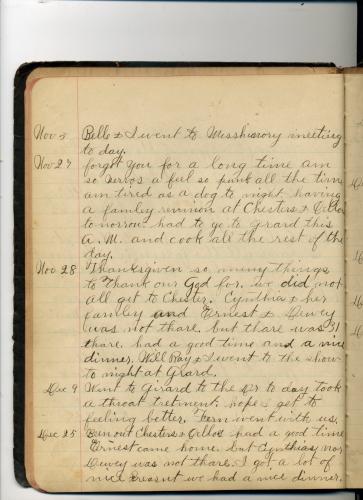 Nov 5 Belle & I went to Misshinory meeting
to day.
Nov 27 forgot you for a long time am
so nervos a ful so punk all the time
am tired as a dog to night having
a famley reunion at Chesters & Ollos
tomorrow had to go to Girard this
A.M. and cook all the rest of the
day.
Nov 28 Thanksgiven so meny things
to thank our God for. we did not
all get to Chester. Cynthia & her
famley and Ernest & Dewey
was not thare. but thare was 31
thare. had a good time and a nice
dinner. Will Ray & I went to the show
to night at Girard.
Dec 9 Went to Girard to the Dr to day took
a throat tretment. hope I get to
feeling better. Fern went with us.
Dec 25 Ben out Chesters & Ollos had a good time
Ernest came home. but Cynthias nor
Dewey was not thare. I got a lot of
nice presant we had a nice dinner.